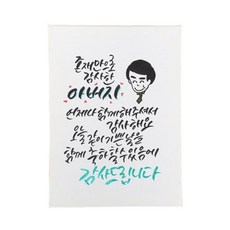 존재만으로
감사한
아버지
언제나 함께해주셔서
감사해요
오늘같이 기쁜날을
함께 축하할수있음에
감사드립니다